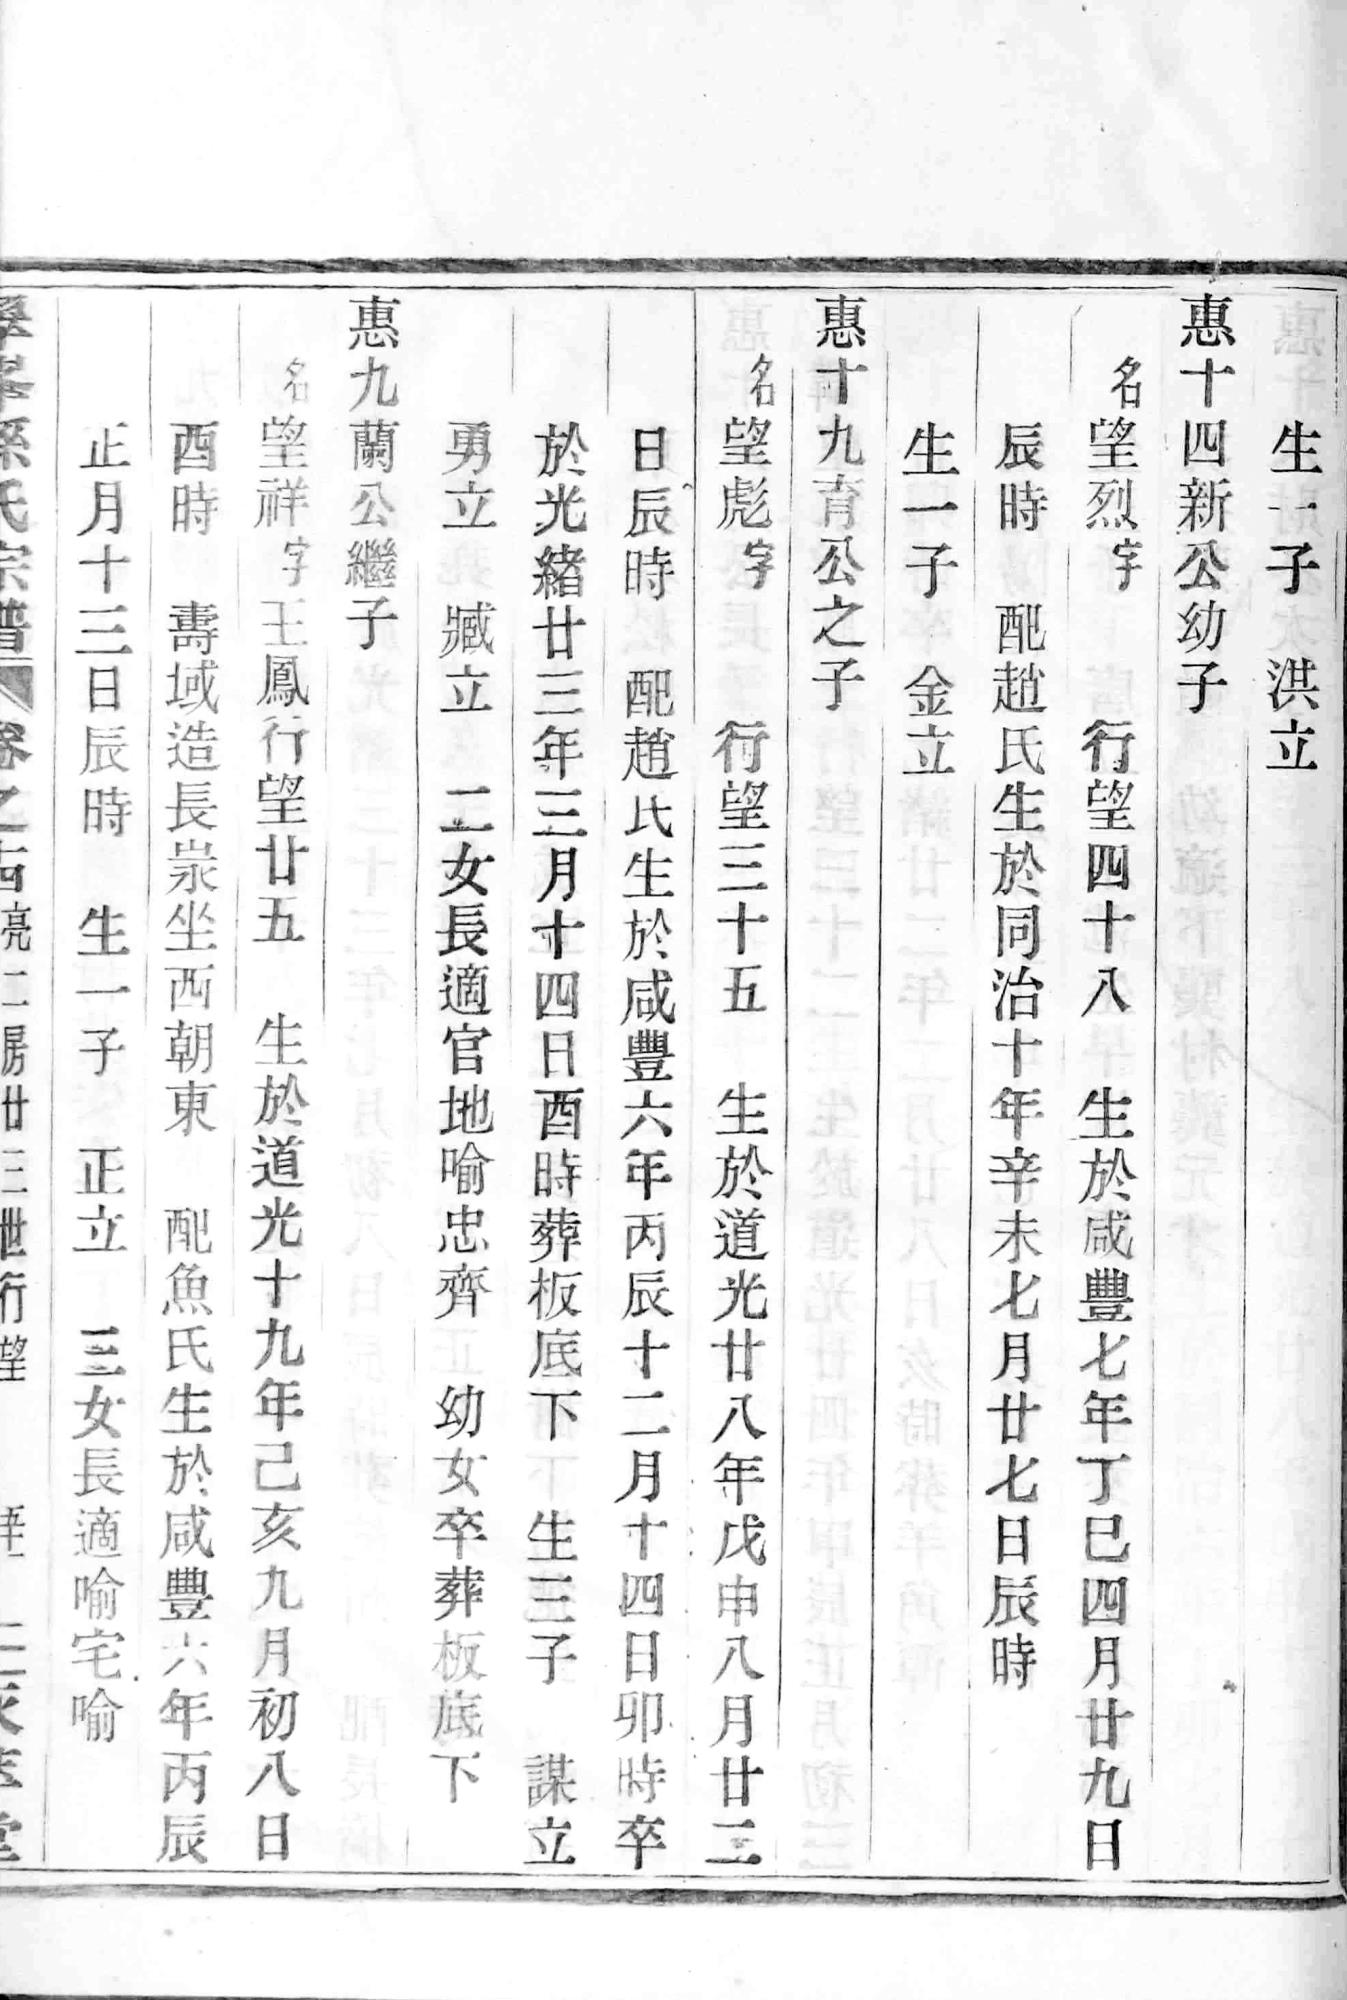 生一子　洪立
惠十四新公幼子
名望烈字　行望四十八　生於咸豐七年丁巳四月廿九日
辰時　配趙氏生於同治十年辛未七月廿七日辰時
生一子　金立
惠十九育公之子
名望彪字　行望三十五　生於道光廿八年戊申八月廿三
日辰時　配趙氏生於咸豐六年丙辰十二月十四日卯時卒
於光緒廿三年三月十四日酉時葬板底下　生三子　謀立
勇立　臧立　二女長適官地喻忠齊　幼女卒葬板底下
惠九蘭公繼子
名望祥字王鳳行望廿五　生於道光十九年己亥九月初八日
酉時　壽域造長㟂坐西朝東　配魚氏生於咸豐六年丙辰
正月十三日辰時　生一子　正立　三女長適喻宅喻
氏宗譜　卷之　亮二房廿三世行望